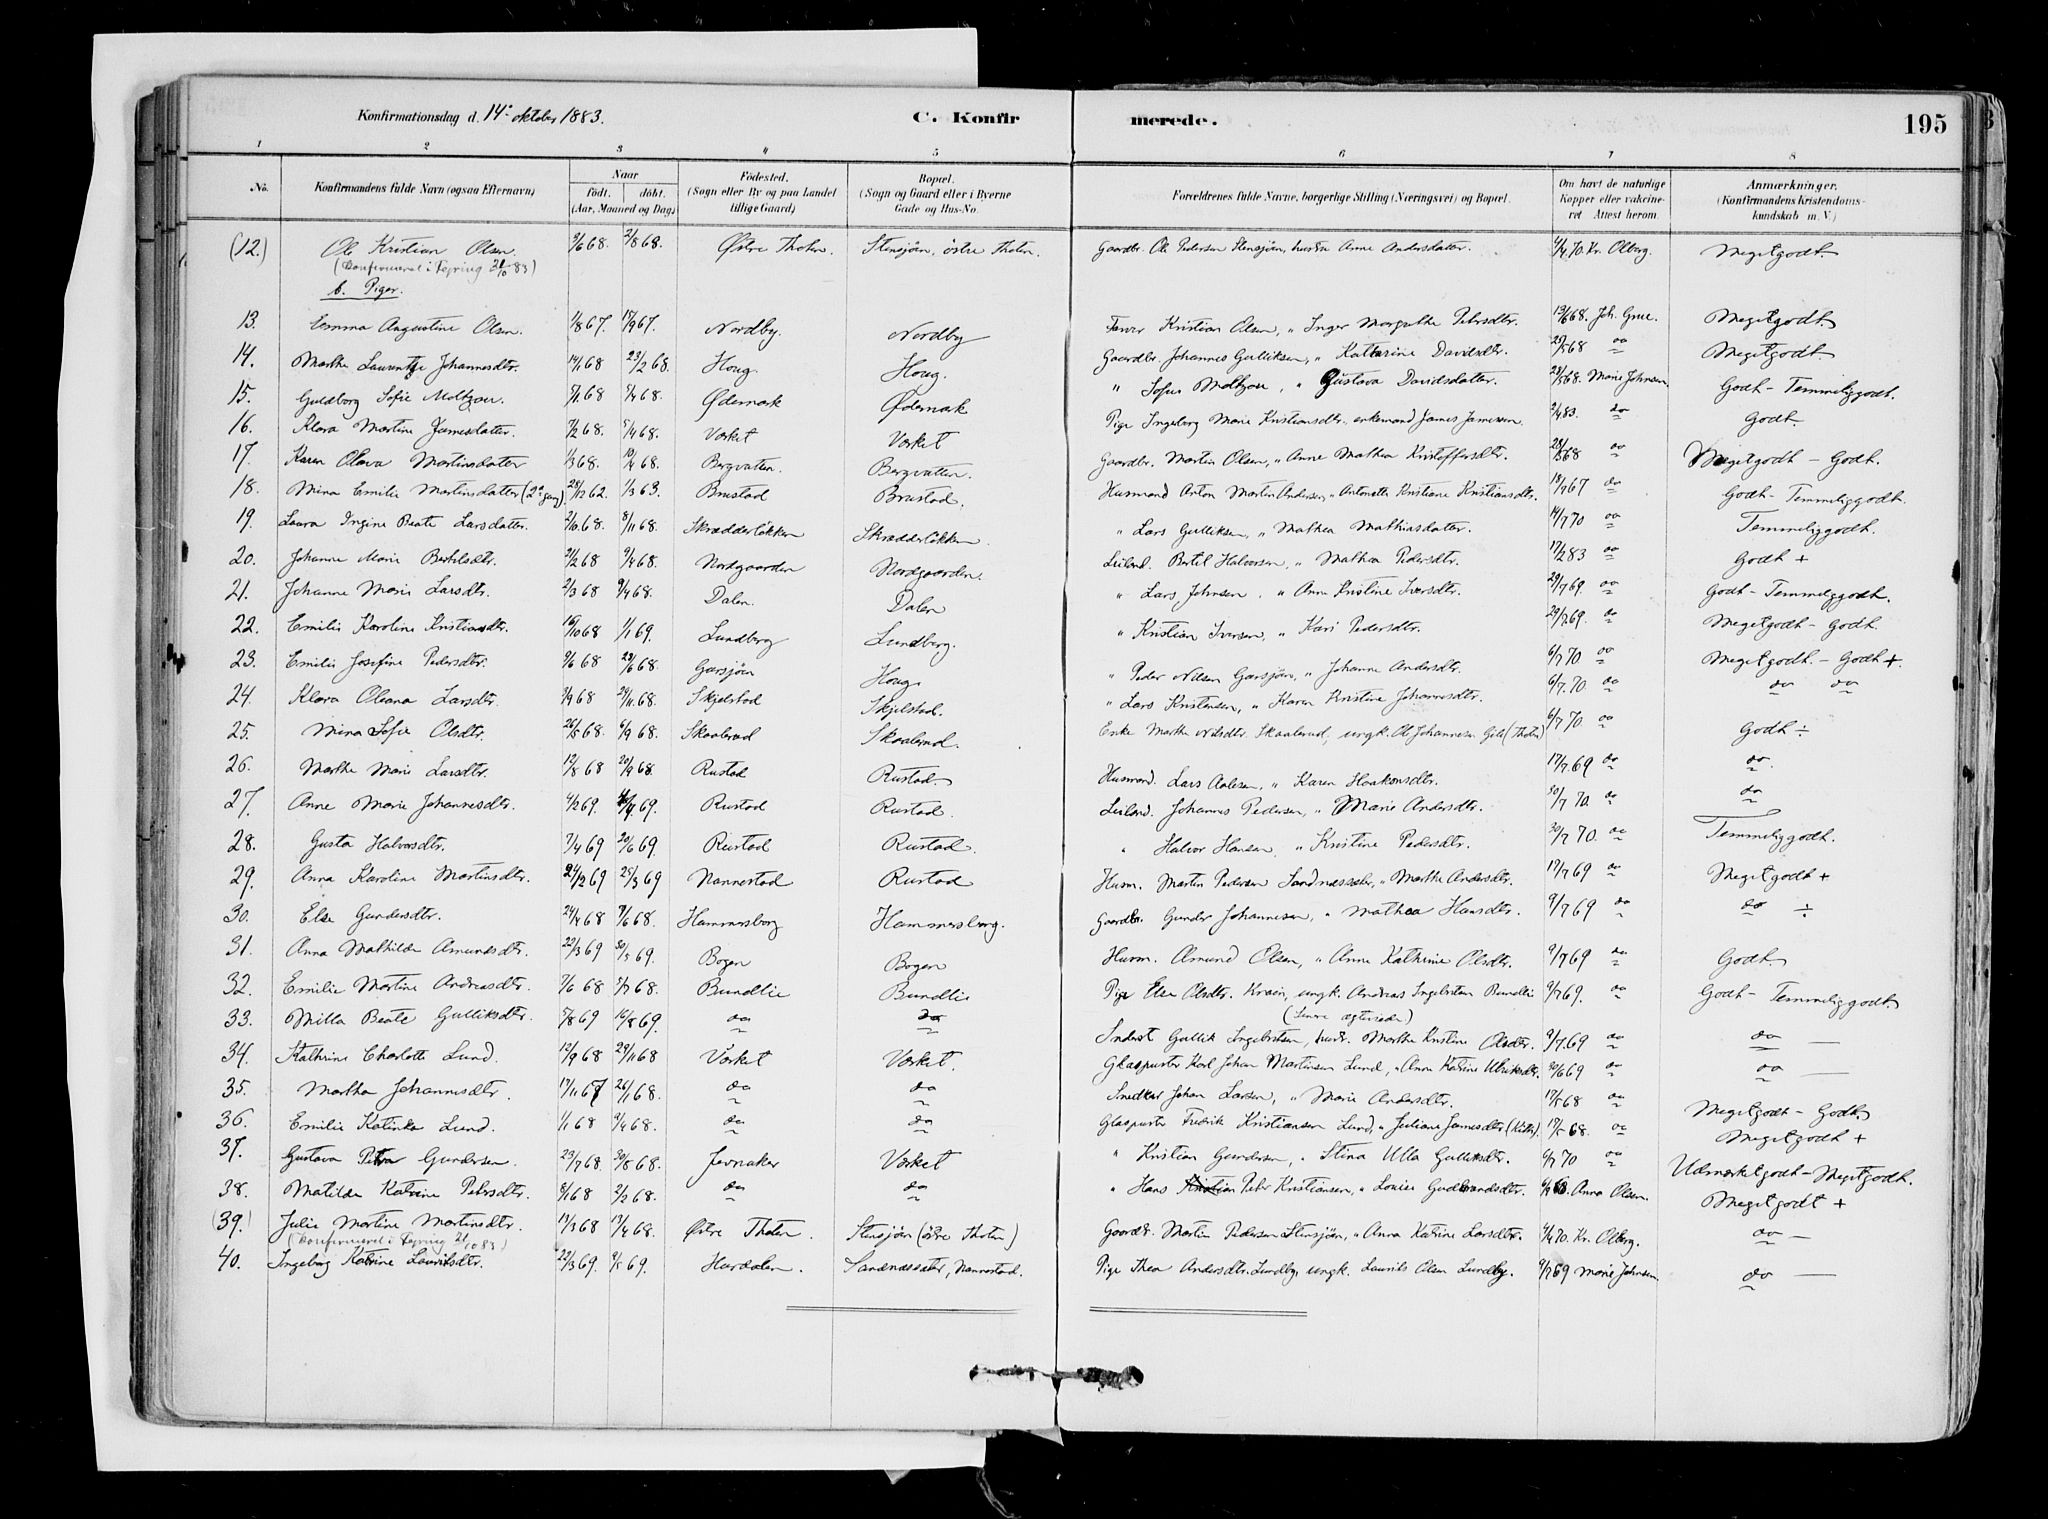 Konfirmationsdag d. 14. oktober 1883. C. Konfirmerede. 195
1 2 3 4 5 6 7 8
No. Konfirmandens fulde Navn (ogsaa Efternavn) Naar født. døbt. (Aar, Maaned og Dag) Fødested. (Sogn eller By og paa Landet tillige Gaard) Bopæl. (Sogn og Gaard eller i Byerne Gade og Hus-No. Forældrenes fulde Navne, borgerlige Stilling (Næringsvei) og Bopæl. Om havt de naturlige Kopper eller vakcineret Attest herom. Anmærkninger. (Konfirmandens Kristendomskundskab m. V.)
(12.) Ole Kristian Olsen. 9/6 68. 2/8 68. Østre Thoten. Stensjøen, østre Thoten. Gaardbr. Ole Pedersen Stensjøen, hustru Anne Andersdatter. 4/4 70. Kr. Olberg. Megetgodt.
(Konfirmeret i Fejring 21/10 83)
b. Piger.
13. Emma Augustine Olsen. 1/8 67. 15/9 67. Nordby. Nordby Farver Kristian Olsen, " Inger Margrethe Petersdtr. 19/6 68. Joh. Grue. Megetgodt.
14. Marthe Laurentze Johannesdtr. 14/1 68 23/2 68. Houg. Houg. Gaardbr. Johannes Gulliksen, " Katherine Davidsdtr. 25/5 68 do Megetgodt
15. Guldborg Sofie Moltzau. 5/1 68 5/4 68. Ødemark Ødemark " Sofus Moltzau, " Gustava Davidsdatter. 23/5 68. Marie Johnsen. Godt - Temmeliggodt.
16. Klara Martine Jamesdatter. 7/2 68. 5/4 68. Værket Værket Pige Ingeborg Marie Kristiansdtr. enkemand James Jamesen. 2/4 83. do Godt.
17. Karen Olava Martinsdatter 1/3 68. 10/4 68. Bergvatten. Bergvatten. Gaardbr. Martin Olsen, " Anne Mathea Kristoffersdtr. 28/5 68 do Megetgodt - Godt.
18. Mina Emilie Martinsdatter (2den gang) 28/12 62. 1/3 63. Brustad Brustad. Husmand Anton Martin Andersen, " Antonette Kristiane Kristiansdtr. 18/7 67 do Godt - Temmeliggodt.
19. Laura Ingine Beate Larsdatter. 2/10 68. 8/11 68. Skrædderløkken Skrædderløkken. " Lars Gulliksen, " Mathea Mathiasdatter. 14/7 70 do Temmeliggodt.
20. Johanne Marie Bertelsdtr. 2/2 68 9/4 68. Nordgaarden Nordgaarden. Leilend. Bertel Halvorsen, " Mathea Pedersdtr. 17/2 83 do Godt +
21. Johanne Marie Larsdtr. 2/3 68 9/4 68. Dalen. Dalen " Lars Johnsen, " Anne Kristine Iversdtr. 29/7 69. do Godt - Temmeliggodt.
22. Emilie Karoline Kristiansdtr. 16/10 68 1/1 69. Lundberg Lundberg. " Kristian Iversen, " Kari Pedersdtr. 29/7 69. do Megetgodt - Godt.
23. Emilie Josefine Pedersdtr. 9/6 68 29/6 68 Garsjøen Houg. " Peder Nilsen Garsjøen, " Johanne Andersdtr. 6/7 70 do Megetgodt. - Godt +.
24. Klara Oleana Larsdtr. 3/9 68 29/11 68. Skjelstad Skjelstad. " Lars Kristensen, " Karen Kristine Johannesdtr. 6/7 70. do do do
25. Mina Sofie Olsdtr. 26/5 68. 6/9 68. Skaalerud Skaalerud. Enke Marthe Nilsdtr. Skaalerud, ungk. Ole Johannesen Gile (Thoten) 6/7 70 do Godt ÷
26. Marthe Marie Larsdtr. 12/8 68 20/9 68. Rustad Rustad. Husmand. Lars Aalesen, " Karen Haakonsdtr. 17/7 69 do do.
27. Anne Marie Johannesdtr. 4/2 69. 4/7 69. Rustad Rustad. Leilend. Johannes Pedersen, " Marie Andersdtr. 30/7 70. do do
28. Gusta Halvorsdtr. 7/4 69 20/6 69. Rustad Rustad. " Halvor Hansen, " Kristine Pedersdtr. 30/7 70. do Temmeliggodt.
29. Anna Karoline Martinsdtr. 24/12 69 25/3 69 Nannestad Rustad Husm. Martin Pedersen Sandnæssæter, " Marthe Andersdtr. 17/7 69 do Megetgodt +
30. Else Gundersdtr. 24/4 68 7/6 68. Hammersborg Hammersborg. Gaardbr. Gunder Johannesen, " Mathea Hansdtr. 9/7 69 do do ÷
31. Anna Mathilde Amundsdtr. 22/3 69 30/5 69. Bogen Bogen Husm. Amund Olsen, " Anne Kathrine Olsdtr. 9/7 69 do Godt.
32. Emilie Martine Andreasdtr. 7/6 68 5/7 68. Bundlie Bundlie Pige Else Olsdtr. Kraen, ungk. Andreas Ingebretsen Bundlie 9/7 69. do Godt - Temmeliggodt.
(Senere ægteviede)
33. Milla Beate Gulliksdtr. 5/8 69 16/8 69. do do Inderst Gullik Ingebretsen, hustr. Marthe Kristine Olsdtr. 9/7 69 do do —
34. Kathrine Charlotte Lund. 12/9 68 29/11 68 Værket Værket. Glaspuster Karl Johan Martinsen Lund, " Anna Katrine Ulriksdtr. 30/6 69 do do —
35. Martha Johannesdtr. 17/11 67 26/1 68. do do Snedker Johan Larsen, " Marie Andersdtr. 17/5 68 do Megetgodt - Godt.
36. Emilie Katinka Lund. 1/1 68 9/4 68. do do Glaspuster Fredrik Kristiansen Lund, " Juliane Jamesdtr. 17/5 68. do Megetgodt +
37. Gustava Petra Gundersen. 23/7 68. 30/8 68. Jevnaker Værket " Kristian Gundersen, " Stina Ulla Gulliksdtr. 6/7 70 do Udmerketgodt - Megetgodt.
38. Matilde Katrine Petersdtr. 8/1 68 2/2 68. do do " Hans Peter Kristiansen, " Louise Gudbrandsdtr. Anna Olsen. Megetgodt +
(39.) Julie Martine Martinsdtr. 13/3 68 13/4 68. Østre Thoten. Stensjøen (østre Thoten) Gaardbr. Martin Pedersen Stensjøen, " Anna Katrine Larsdtr. 4/4 70. Kr. Olberg. do —
(Konfirmeret i Fejring 21/10 83)
40. Ingeborg Katrine Lauritsdtr. 22/3 69. 9/5 69. Hurdalen. Sandnæssæter, Nannestad. Pige Thea Andersdtr. Lundby, ungk. Laurits Olsen Lundby. 9/7 69 Marie Johnsen. do —